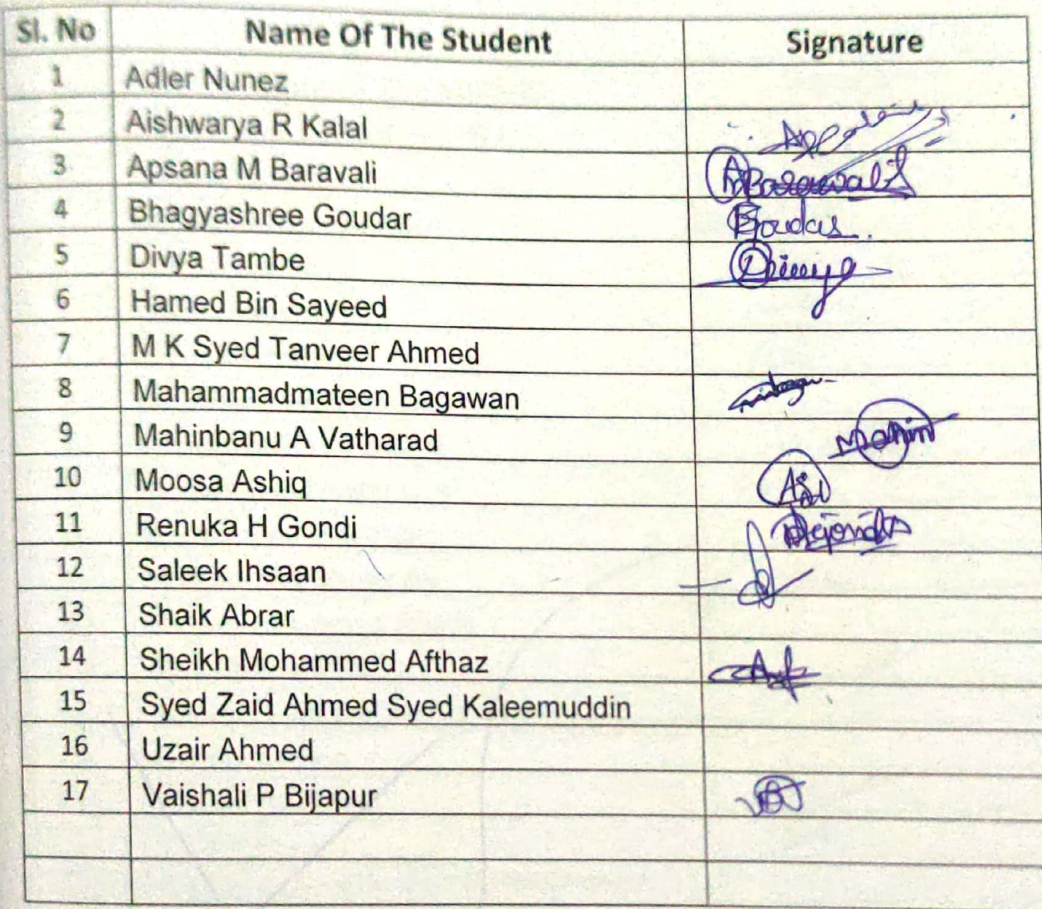 Sl. No Name Of The Student Signature
1 Adler Nunez
2 Aishwarya R Kalal
3 Apsana M Baravali
4 Bhagyashree Goudar Goudar
5 Divya Tambe Divya
6 Hamed Bin Sayeed
7 M K Syed Tanveer Ahmed
8 Mahammadmateen Bagawan
9 Mahinbanu A Vatharad Mahin
10 Moosa Ashiq
11 Renuka H Gondi
12 Saleek Ihsaan
13 Shaik Abrar
14 Sheikh Mohammed Afthaz
15 Syed Zaid Ahmed Syed Kaleemuddin
16 Uzair Ahmed
17 Vaishali P Bijapur